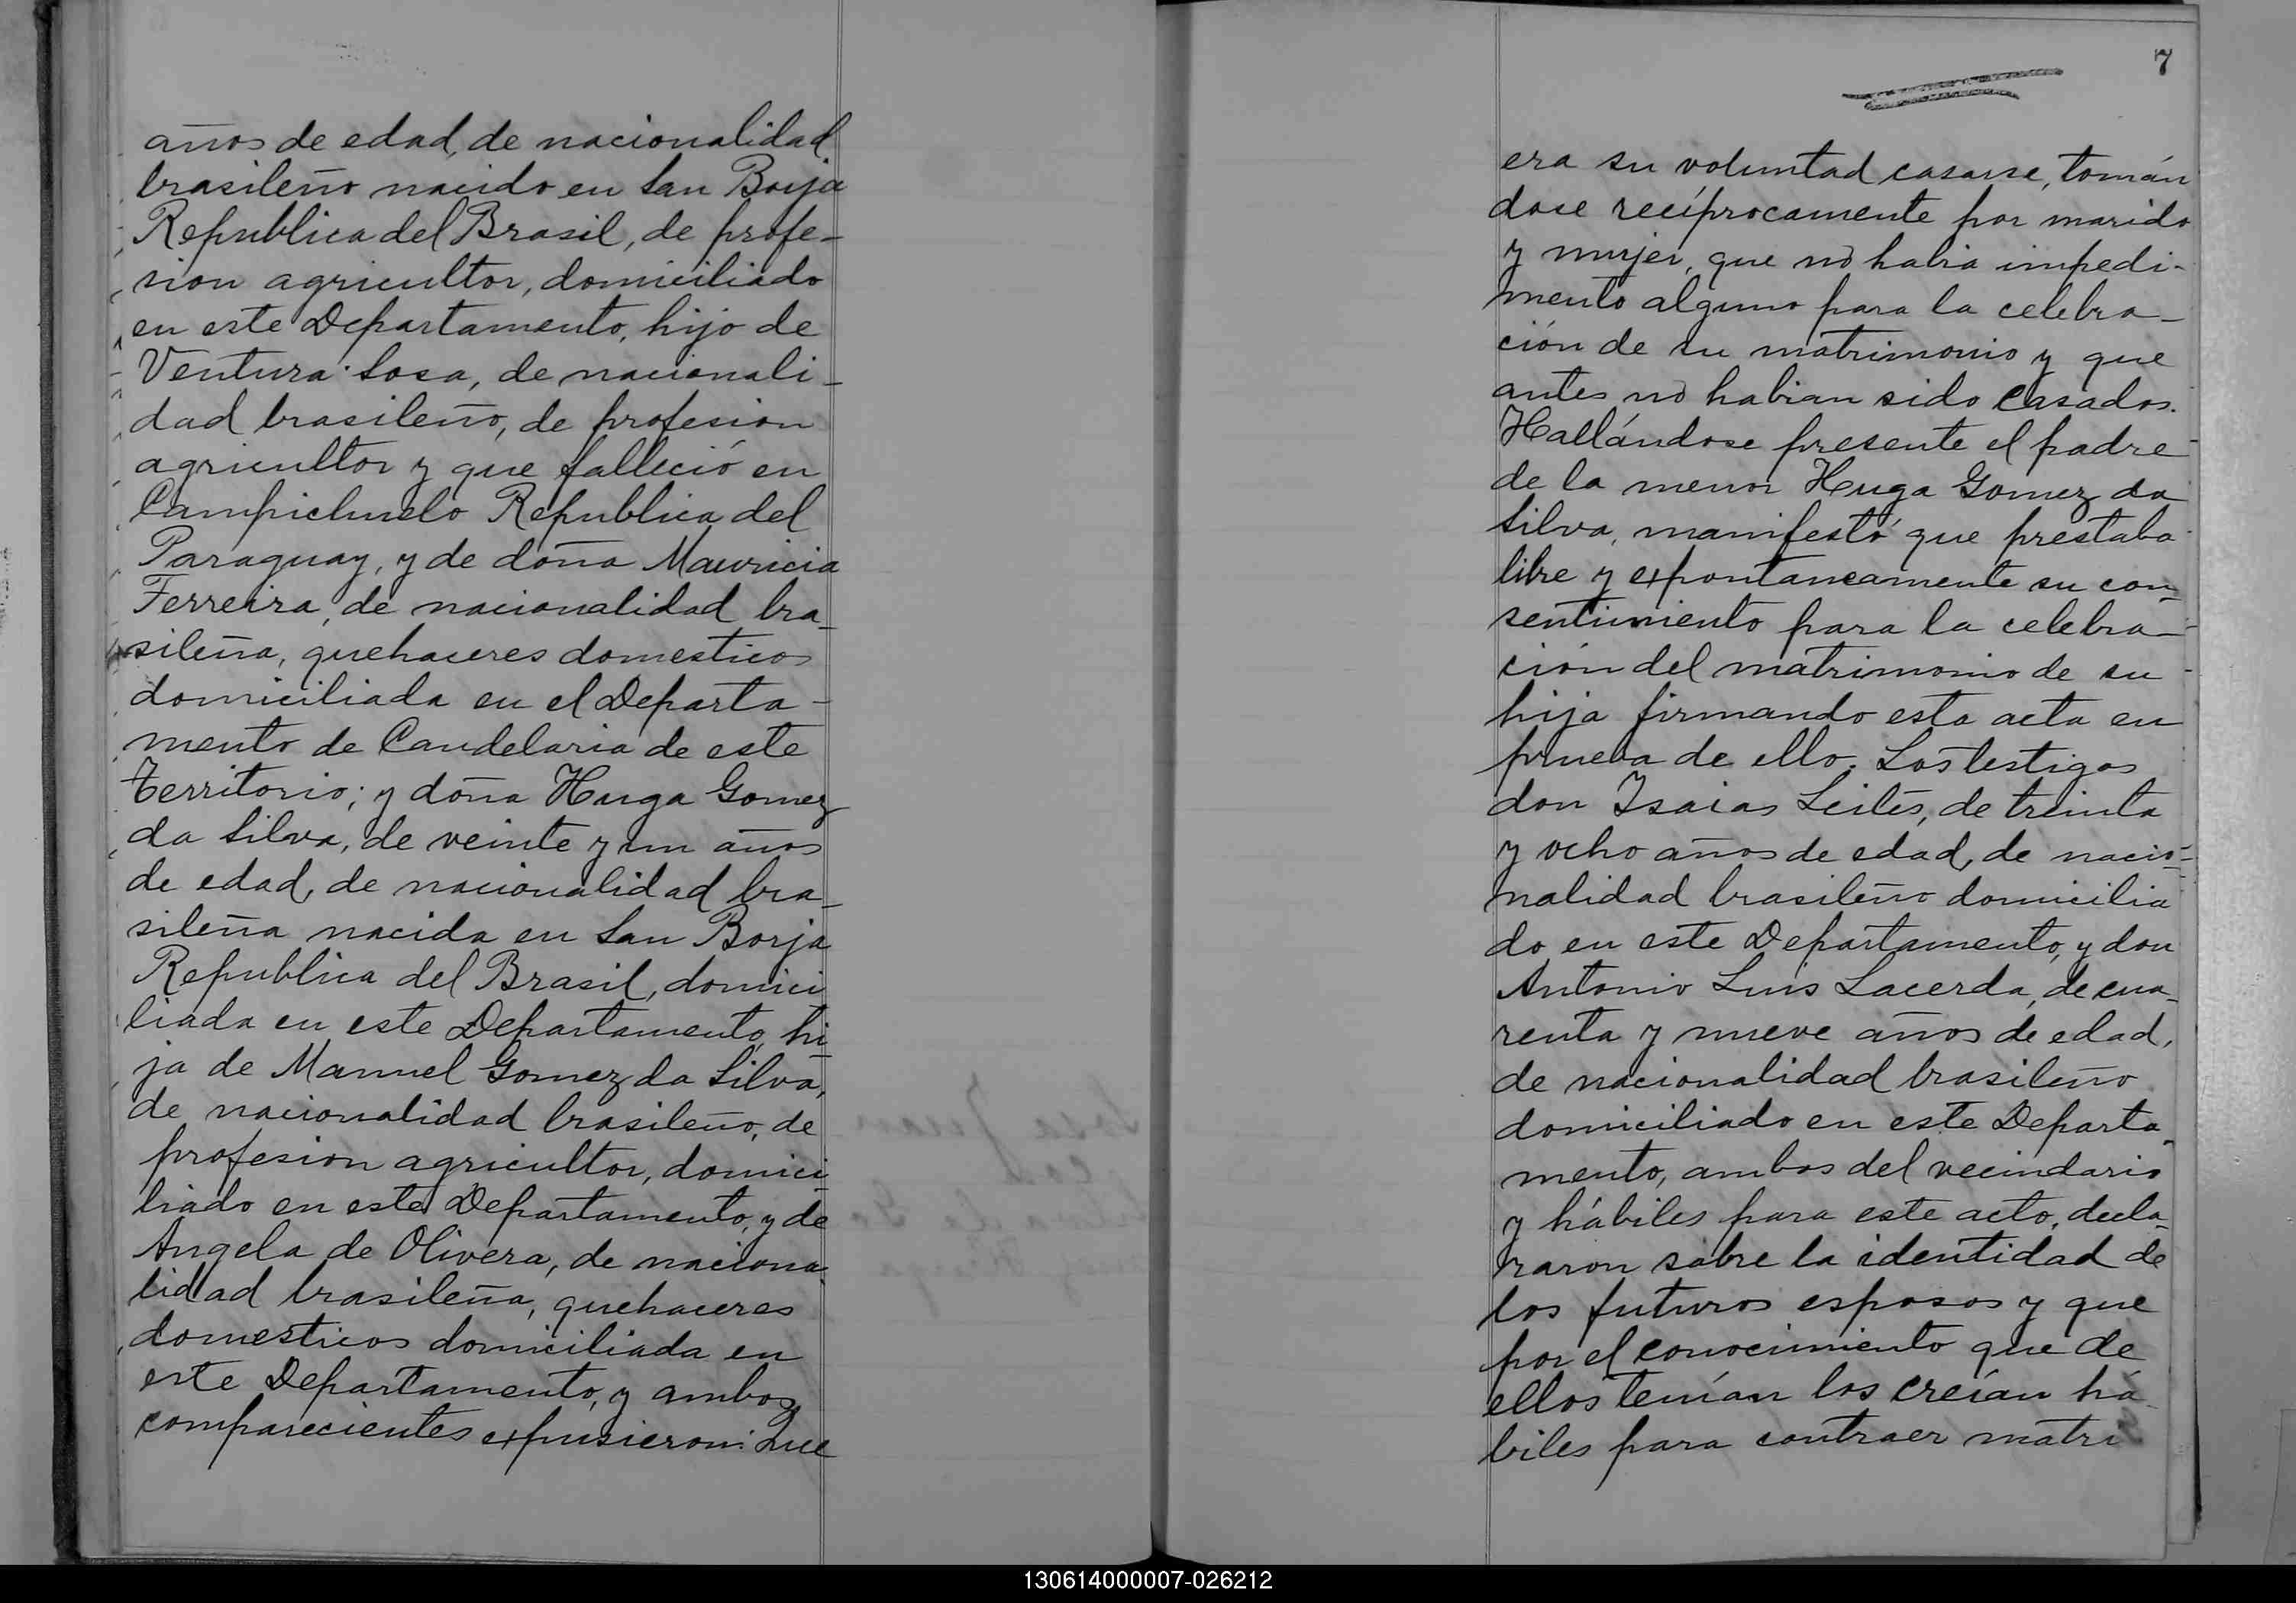 años de edad, de nacionalidad
brasileño nacido en San Borja
Republica del Brasil, de profe-
sion agricultor, domiciliado
en este Departamento, hijo de
Ventura Sosa, de nacionali-
dad brasileño, de profesion
agricultor y que falleció en
Campichuelo Republica del
Paraguay, y de doña Mauricia
Ferreira, de nacionalidad bra-
sileña, quehaceres domesticos
domiciliada en el Departa-
mento de Candelaria de este
territorio; y doña Huga Gomez
da Silva, de veinte y un años
de edad, de nacionalidad bra-
sileña nacida en San Borja
Republica del Brasil, domici-
liada en este Departamento, hi-
ja de Manuel Gomez da Silva,
de nacionalidad brasileño, de
profesion agricultor, domici-
liado en este Departamento, y de
Angela de Olivera, de naciona-
lidad brasileña, quehaceres
domesticos domiciliada en
este Departamento, y ambos
comparecientes expusieron: Que
7
era su voluntad casarse, tomán
dose recíprocamente por marido
y mujer, que no habia impedi-
mento alguno para la celebra-
ción de su matrimonio y que
antes no habian sido casados.
Hallándose presente el padre
de la menor Huga Gomez da
Silva, manifestó que prestaba
libre y expontaneamente su con-
sentimiento para la celebra-
ción del matrimonio de su
hija firmando esta acta en
prueba de ello. Los testigos
don Isaias Leites, de treinta
y ocho años de edad, de nacio-
nalidad brasileño domicilia
do en este Departamento, y don
Antonio Luis Lacerda, de cua-
renta y nueve años de edad,
de nacionalidad brasileño
domiciliado en este Departa-
mento, ambos del vecindario
y hábiles para este acto, decla-
raron sobre la identidad de
los futuros esposos y que
por el conocimiento que de
ellos tenían los creían há-
biles para contraer matri
130614000007-026212